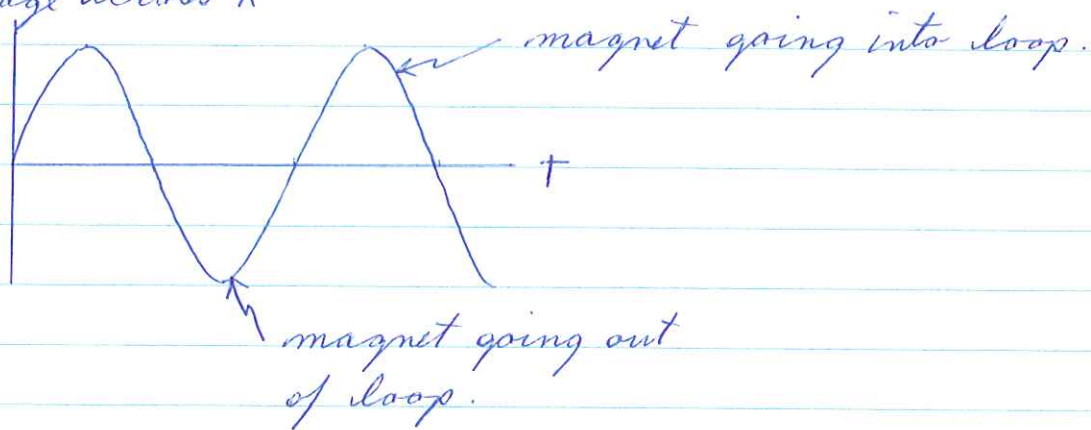 magnet going into loop.
t
magnet going out
of loop.